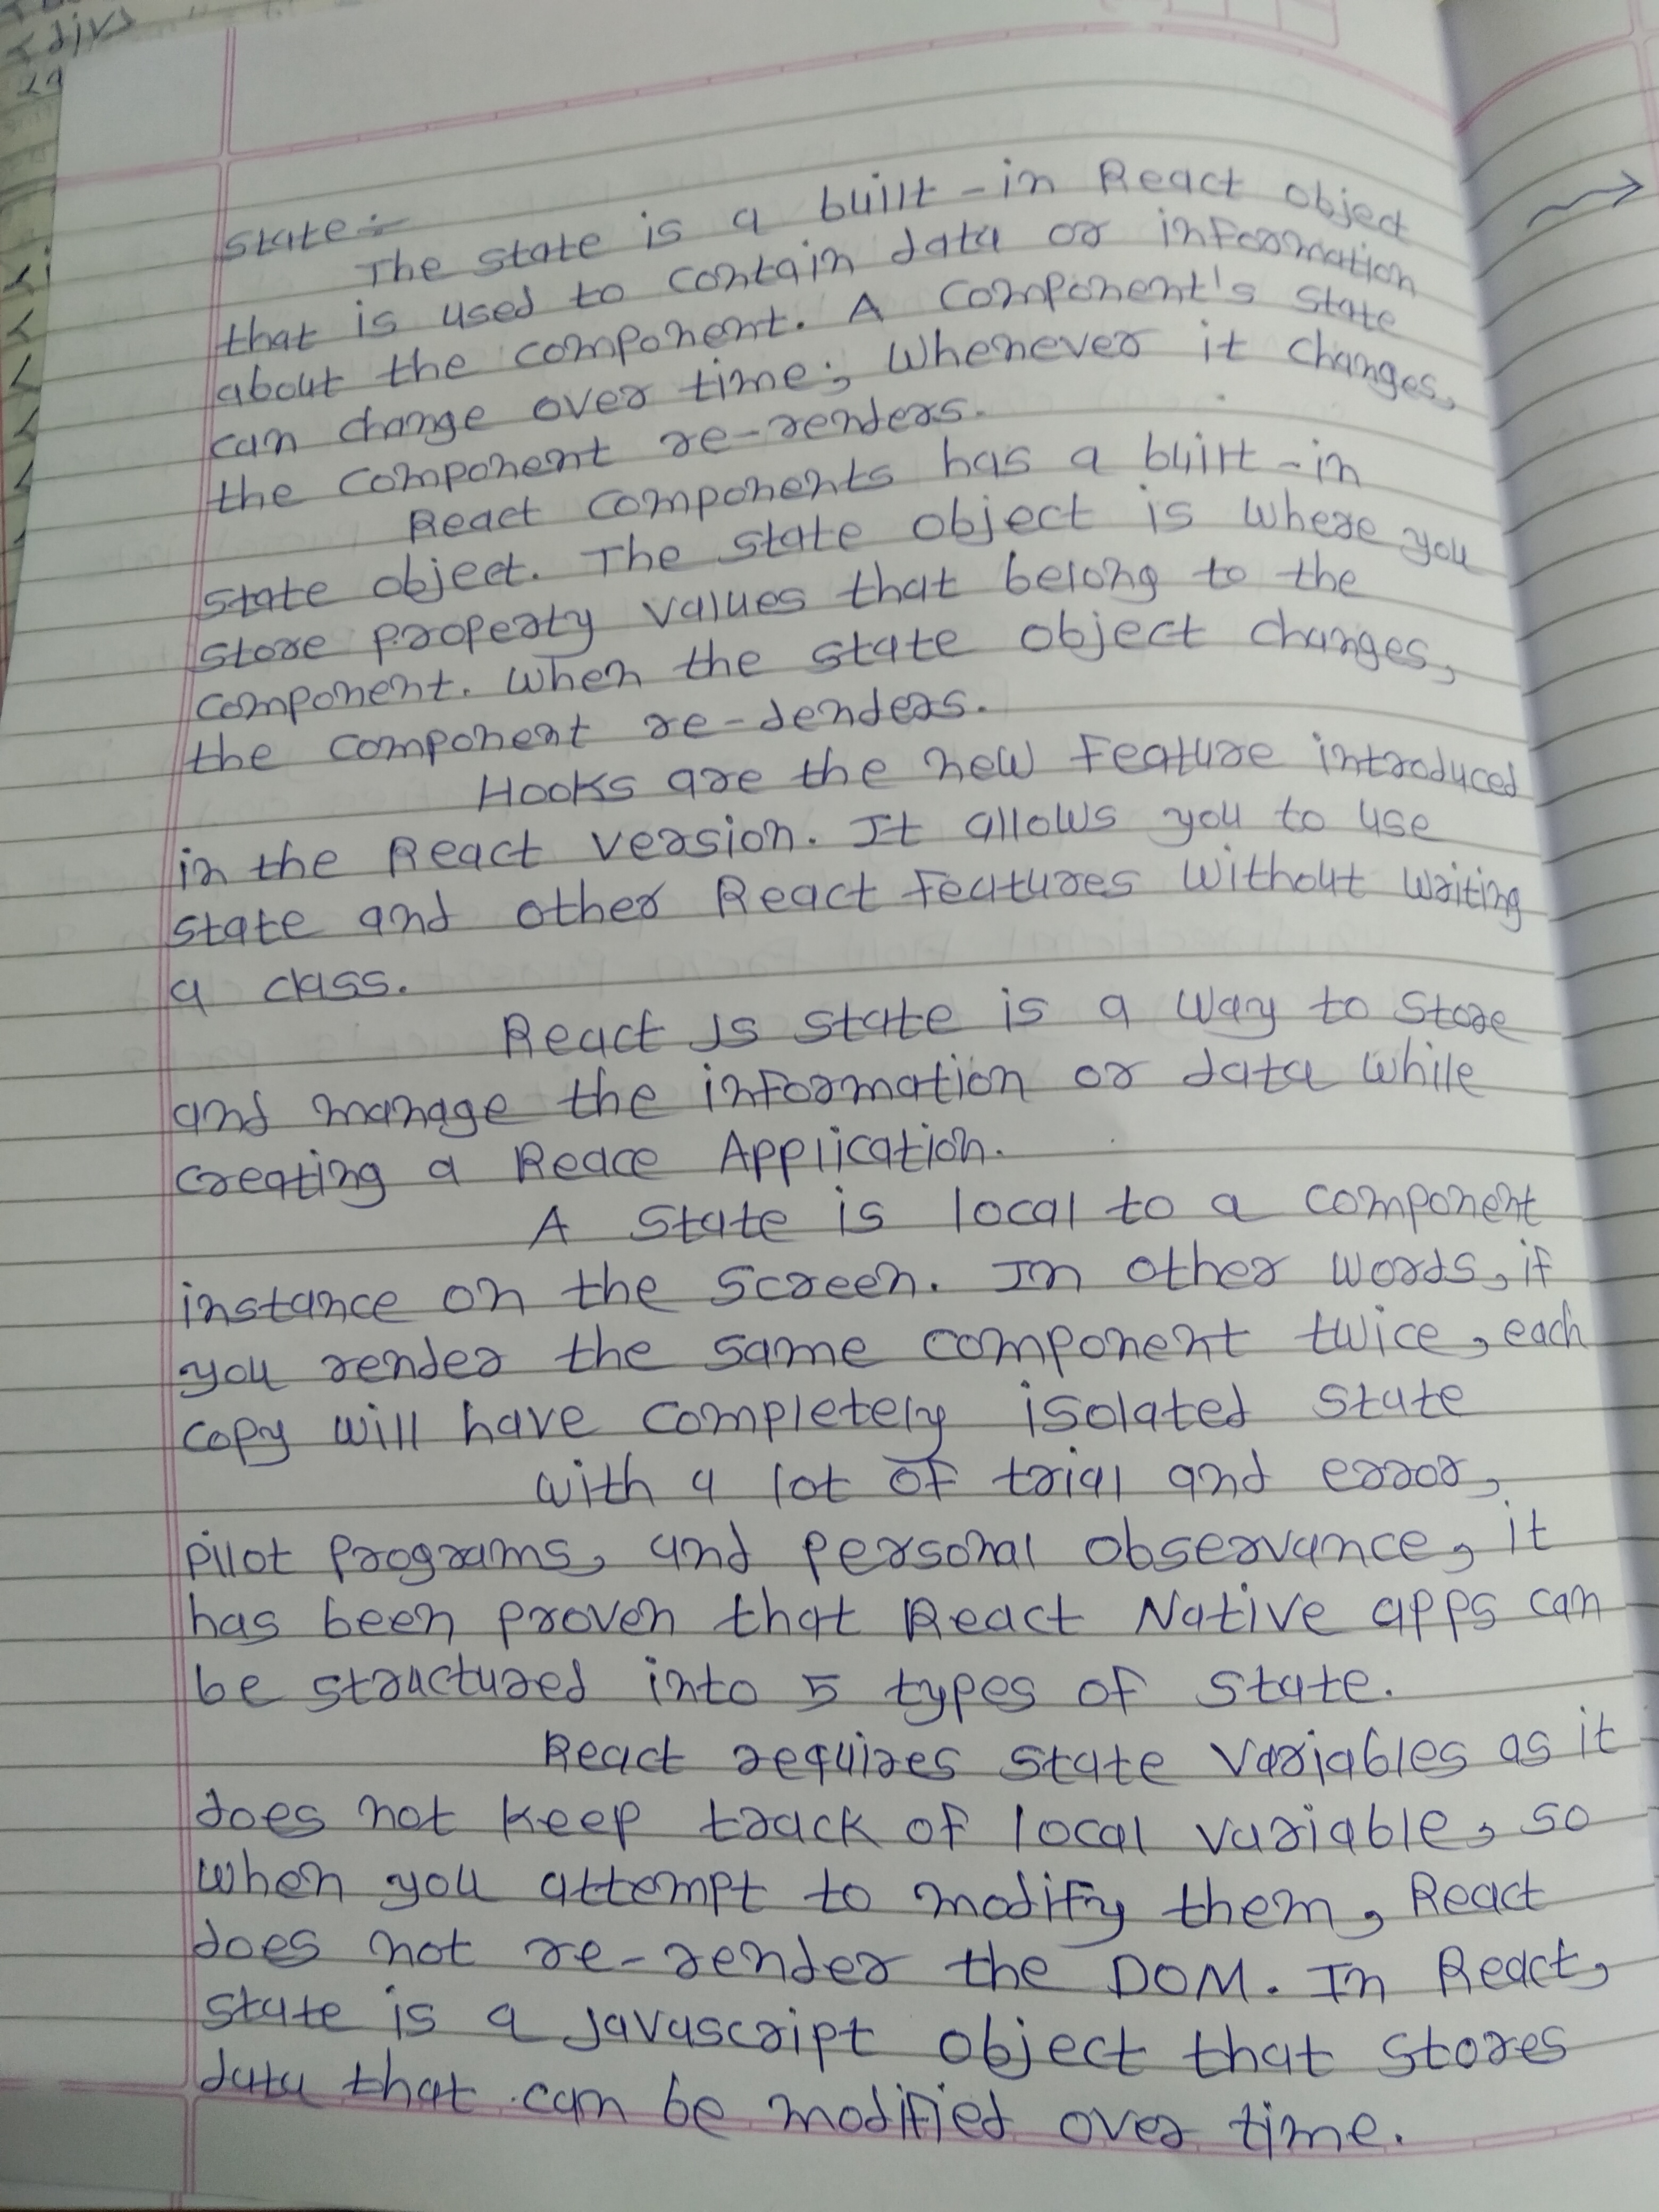 State :-
The state is a built-in React object
that is used to contain data or information
about the component. A component's state
can change over time; Whenever it changes,
the component re-renders.
React components has a built-in
state object. The state object is where you
store property values that belong to the
component. When the state object changes,
the component re-denders.
Hooks are the new feature introduced
in the React version. It allows you to use
state and other React features without writing
a class.
React Js state is a way to store
and manage the information or data while
creating a Reace Application.
A state is local to a component
instance on the screen. In other words, if
you render the same component twice, each
copy will have completely isolated state
with a lot of trial and error,
pilot programs, and personal observance, it
has been proven that React Native apps can
be structured into 5 types of state.
React requires state variables as it
does not keep track of local variable, so
when you attempt to modify them, React
does not re-render the DOM. In React,
state is a javascript object that stores
data that can be modified over time.